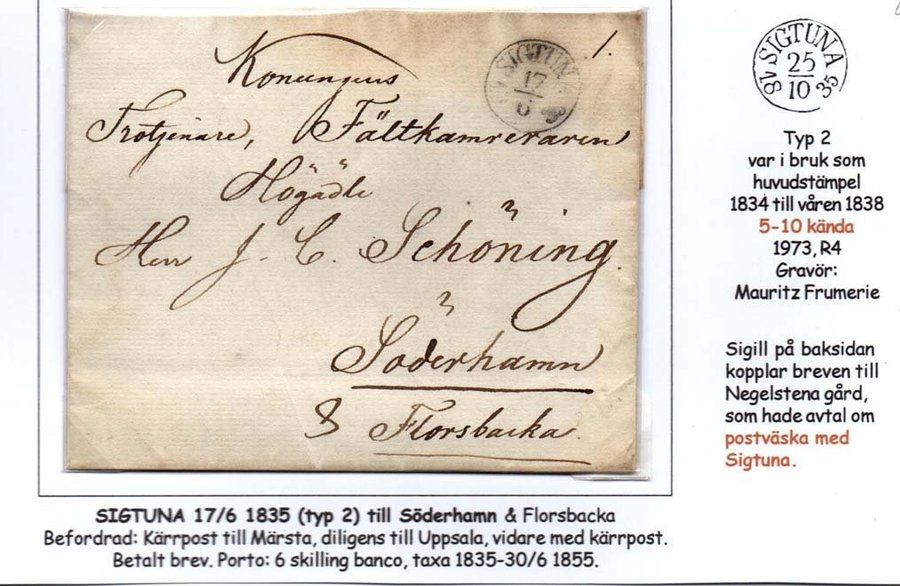 1.
SIGTUN
17
6
Konungens
Trotjenare, Fältkamreraren
Högädle
Herr J. C. Schöning.
Söderhamn
& Florsbacka.
SIGTUNA 17/6 1835 (typ 2) till Söderhamn & Florsbacka
Befordrad: Kärrpost till Märsta, diligens till Uppsala, vidare med kärrpost.
Betalt brev. Porto: 6 skilling banco, taxa 1835-30/6 1855.
SIGTUNA
25
10
18 35
Typ 2
var i bruk som
huvudstämpel
1834 till våren 1838
5-10 kända
1973, R4
Gravör:
Mauritz Frumerie
Sigill på baksidan
kopplar breven till
Negelstena gård,
som hade avtal om
postväska med
Sigtuna.